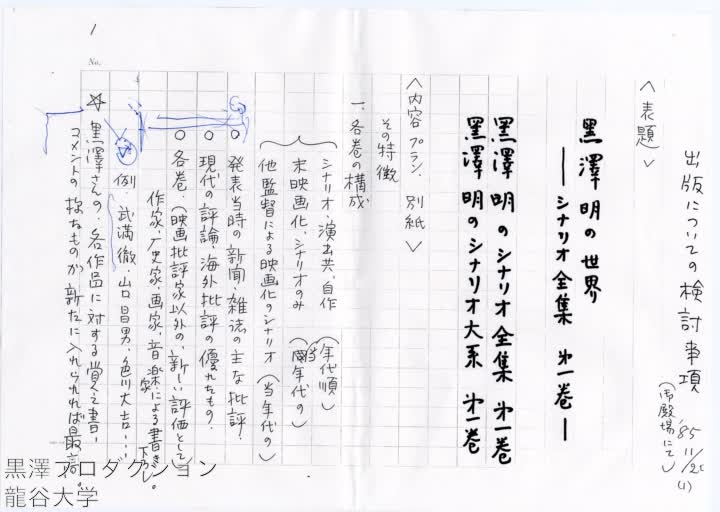 出版についての検討事項
(御殿場にて)
'85
11/20
(1)
<表題>
黒澤明の世界
―シナリオ全集 第一巻―
黒澤明のシナリオ全集 第一巻
黒澤明のシナリオ大系 第一巻
<内容プラン 別紙>
その特徴
一、各巻の構成
シナリオ、演出共、自作(年代順)
未映画化、シナリオのみ(当年代の)
他監督による映画化のシナリオ(当年代の)
○発表当時の新聞・雑誌の主な批評、
○現代の評論、海外批評の優れたもの、
○各巻、(映画批評家以外の、新しい評価として)
作家、歴史家、画家、音楽家による書き下ろし。
例 武満徹、山口昌男、色川大吉……
☆黒澤さんの、各作品に対する覚え書、
コメントの様なものが新たに入れられれば最高。
1
No.
黒澤プロダクション
龍谷大学